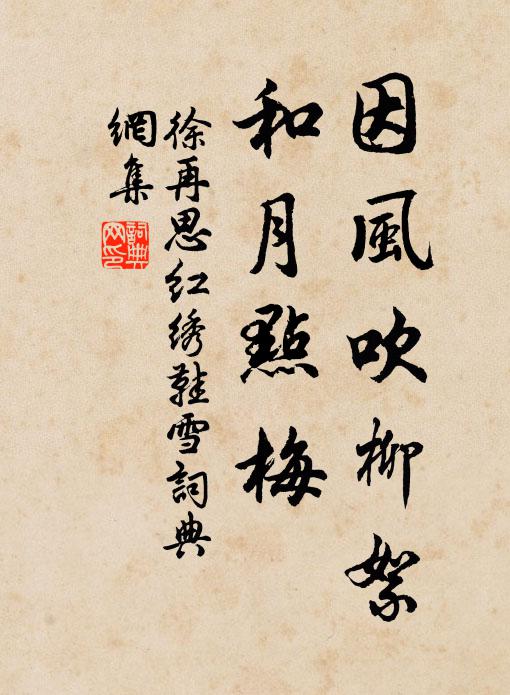 因風吹柳絮
和月點梅
徐再思红绣鞋雪詞典
網集
詞典网印